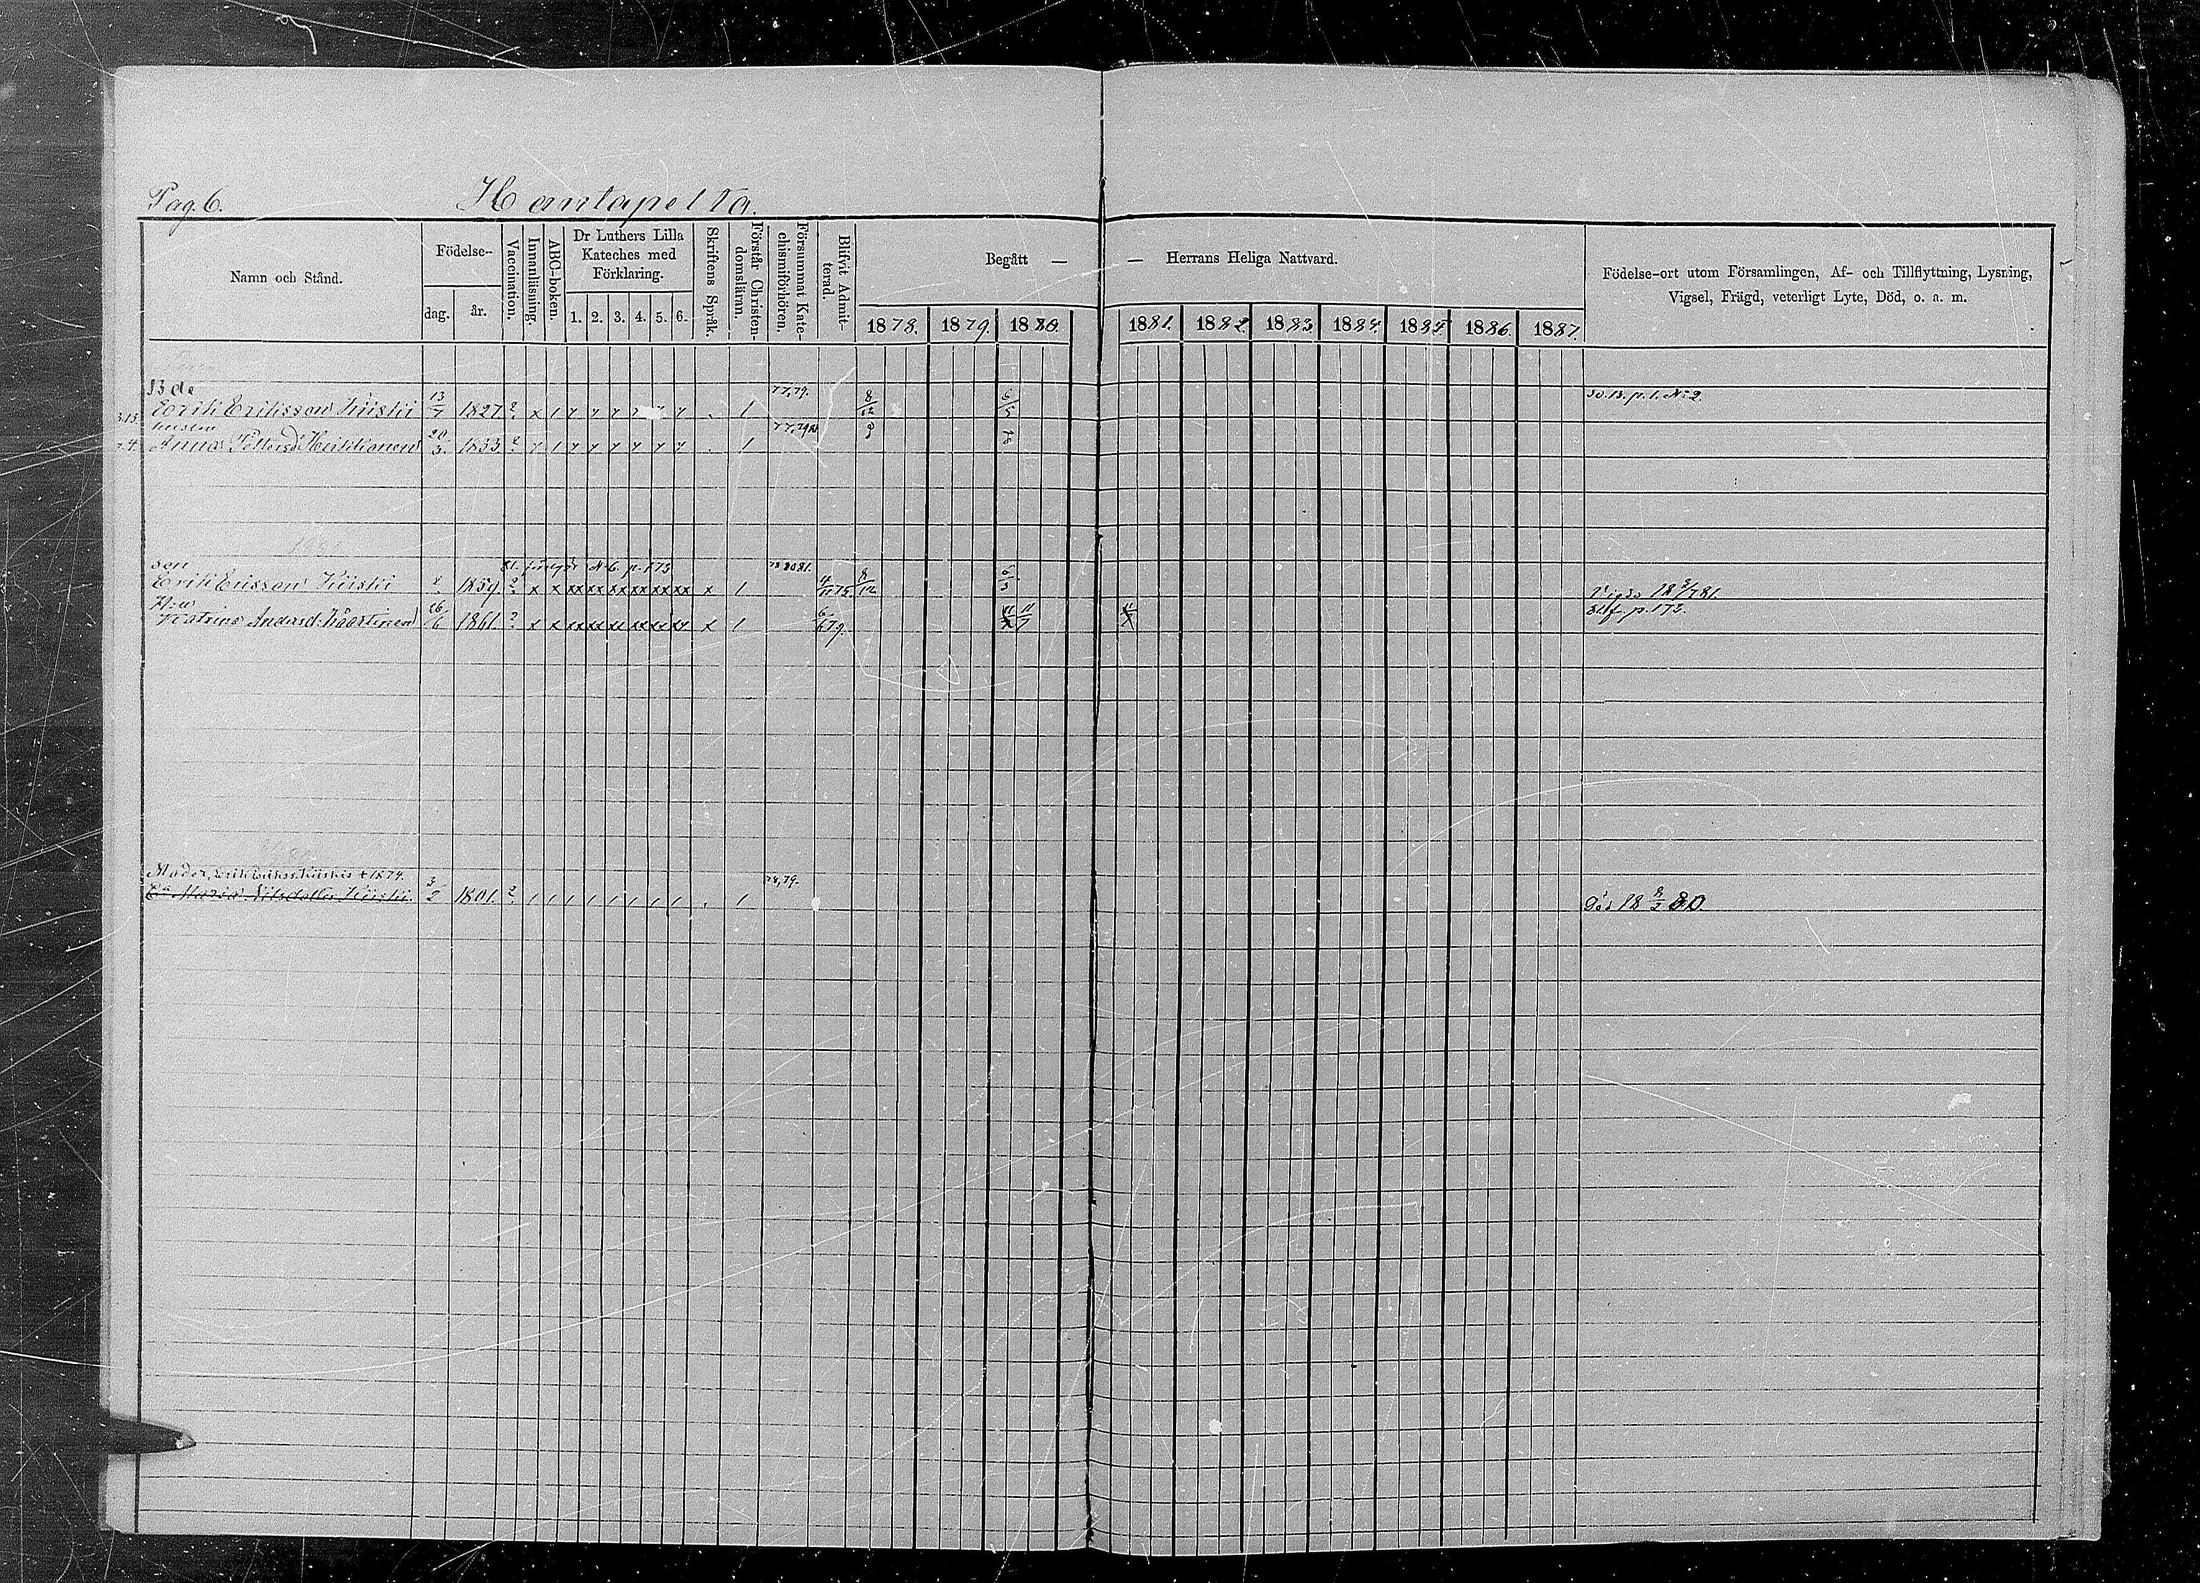 Pag. 6. Hantapelta.
Namn och Stånd.
Födelse-
dag. år.
Vaccination.
Innanläsning.
ABC-boken.
Dr Luthers Lilla
Kateches med
Förklaring.
1. 2. 3. 4. 5. 6.
Skriftens Språk.
Förstår Christen-
domsläran.
Försummat Kate-
chismiförhören.
Blifvit Admit-
terad.
Begått — — Herrans Heliga Nattvard.
1878. 1879. 1880. 1881. 1882. 1883. 1884. 1885 1886. 1887.
Födelse-ort utom Församlingen, Af- och Tillflyttning, Lysning,
Vigsel, Frägd, veterligt Lyte, Död, o. a. m.
Bde 77,79.
Erik Eriksson Kiiskii 13/7 1827. ? x 1 8/12 6/5 p. 1. No 2.
hustru
Anna Pettersd Heikkonen 20/3. 1833. ?
son N. 6. p. 173 78 80 81.
Erik Ersson Kiiskii 1859. ? x x xx xx xx xx xx xx x 1 8/12 6/5
H:u p. 173.
Katrina Andersd: Käartinen 16/6 1861. ? x x xx xx xx xx xx x 1 6/6 79.
Moder, Erik Erikss. Kiiskis + 1874. 78,79.
Maria Nilsdotter Kiiskii. 3/2 1801. ? 1 1 1 1 1 1 1 1 . 1 död 18 8/2 80.